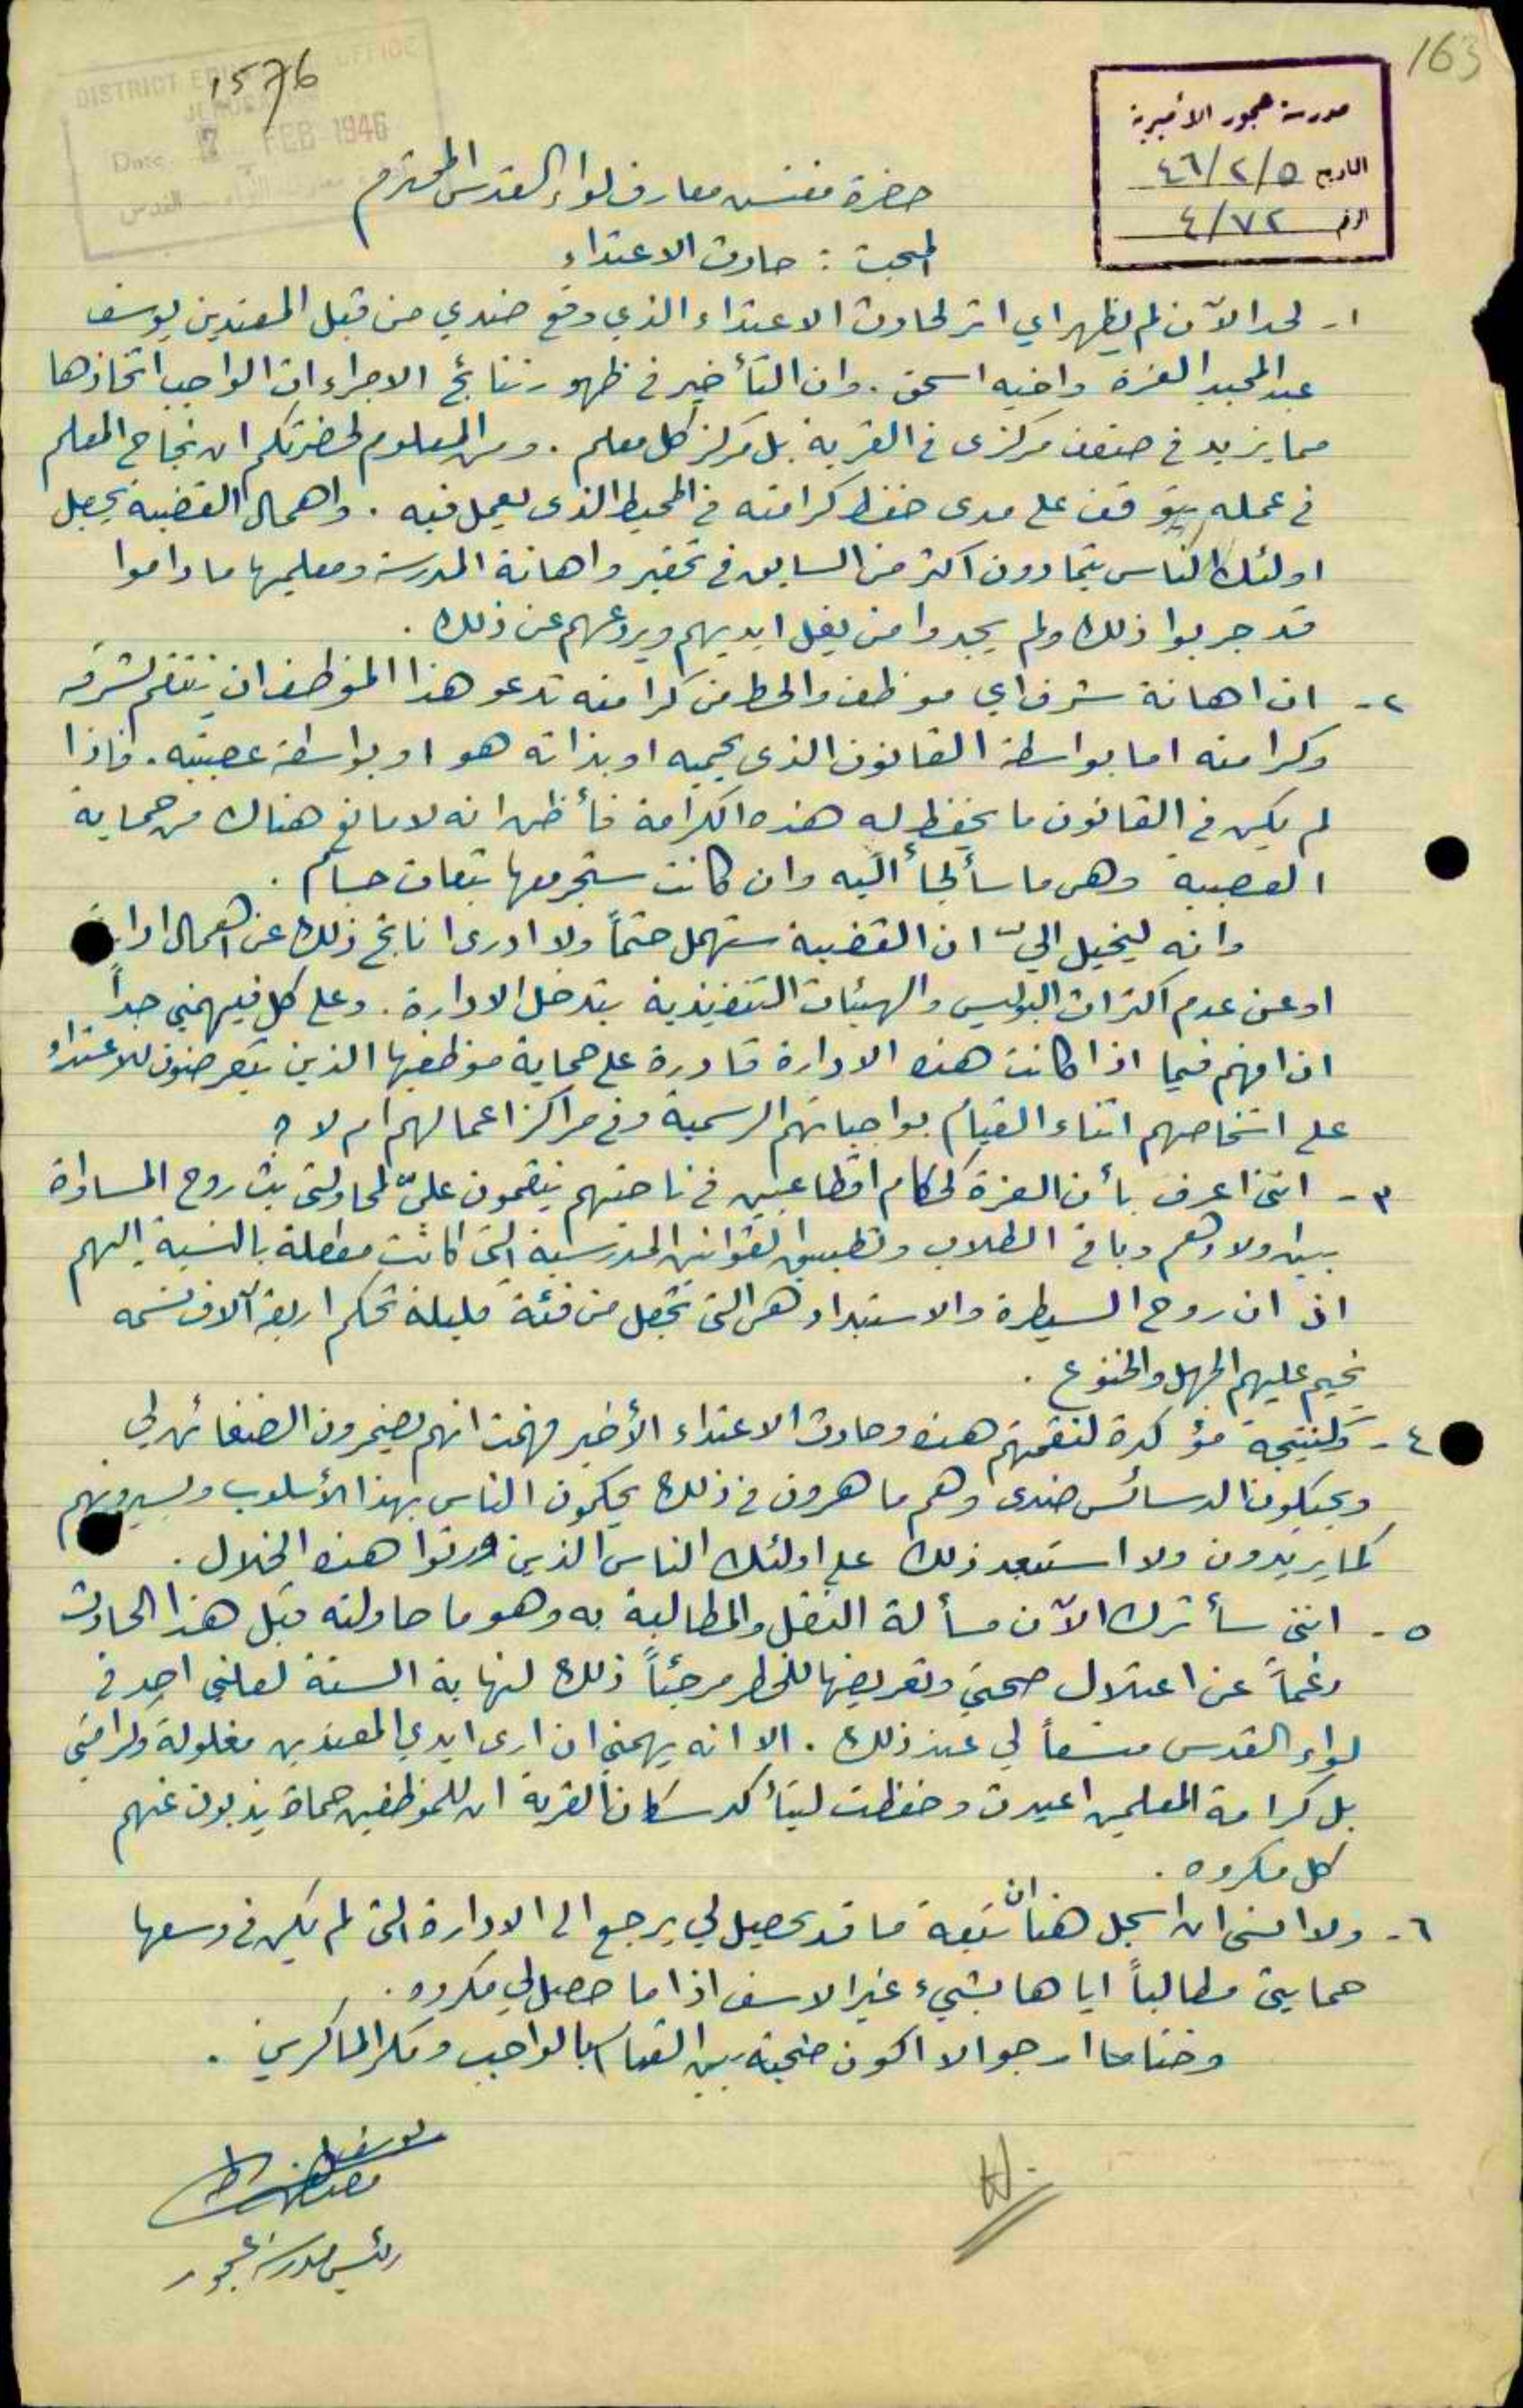 163
1576
DISTRICT EDUCATION OFFICE
JERUSALEM
Date 7 FEB 1946
القدس
مدرسة عجور الأميرية
التاريخ ٤٦/٢/٥
الرقم ٤/٧٢
حضرة مفتش معارف لواء القدس المحترم
المبحث : حادث الاعتداء
١- لحد الآن لم يظهر اي اثر لحادث الاعتداء الذي وقع ضدي من قبل المعتدين يوسف
عبد المجيد العزة واخيه اسحق . وان التأخير في ظهور نتائج الاجراءات الواجب اتخاذها
مما يزيد في ضعف مركزي في القرية بل مركز كل معلم . ومن المعلوم لحضرتكم ان نجاح المعلم
في عمله يتوقف على مدى حفظ كرامته في المحيط الذي يعمل فيه . واهمال القضية يجعل
اولئك الناس يتمادون اكثر من السابق في تحقير واهانة المدرسة ومعلميها ما داموا
قد جربوا ذلك ولم يجدوا من يغل ايديهم ويردعهم عن ذلك .
٢- ان اهانة شرف اي موظف والحط من كرامته تدعو هذا الموظف ان ينتقم لشرفه
وكرامته اما بواسطة القانون الذي يحميه او بذاته هو او بواسطة عصبيته . فاذا
لم يكن في القانون ما يحفظ له هذه الكرامة فأظن انه لا مانع هناك من حماية
العصبية وهي ما سألجأ اليه وان كانت ستجر معها تبعات جسام .
وانه ليخيل اليّ ان القضية ستهمل حتماً ولا ادري أناتج ذلك عن اهمال ادارة
او عن عدم اكتراث البوليس والهيئات التنفيذية بتدخل الادارة . وعلى كل فيهمني جداً
ان افهم فيما اذا كانت هذه الادارة قادرة على حماية موظفيها الذين يتعرضون للاعتداء
على اشخاصهم اثناء القيام بواجباتهم الرسمية وفي مراكز اعمالهم ام لا ؟
٣- انني اعرف بأن العزة كحكام اقطاعيين في ناحيتهم ينقمون عليّ لمحاولتي بث روح المساواة
بين اولادهم وباقي الطلاب وتطبيق القوانين المدرسية التي كانت معطلة بالنسبة اليهم
اذ ان روح السيطرة والاستبداد هي التي تجعل من فئة قليلة تحكم اربعة آلاف نسمه
يخيم عليهم الجهل والخنوع .
٤- وكنتيجة مؤكدة لنقمتهم هذه وحادث الاعتداء الأخير فهمت انهم يضمرون الضغائن لي
ويحيكون الدسائس ضدي وهم ماهرون في ذلك يحكمون الناس بهذا الأسلوب ويسيرونهم
كما يريدون ولا استبعد ذلك على اولئك الناس الذين ورثوا هذه الخلال .
٥- انني سأترك الآن مسألة النقل والمطالبة به وهو ما حاولته قبل هذا الحادث
رغماً عن اعتلال صحتي وتعريضها للخطر مرجئاً ذلك لنهاية السنة لعلني اجد في
لواء القدس متسعاً لي عند ذلك . الا انه يهمني ان ارى ايدي المعتدين مغلولة وكرامتي
بل كرامة المعلمين اعيدت وحفظت ليتأكد سكان القرية ان للموظفين حماة يذبون عنهم
كل مكروه .
٦- ولا انسى ان اسجل هنا ان تبعة ما قد يحصل لي يرجع الى الادارة التي لم يكن في وسعها
حمايتي مطالباً اياها بشيء غير الاسف اذا ما حصل لي مكروه .
وختاما ارجو الا اكون ضحية بين القيام بالواجب ومكر الماكرين .
رئيس مدرسة عجور